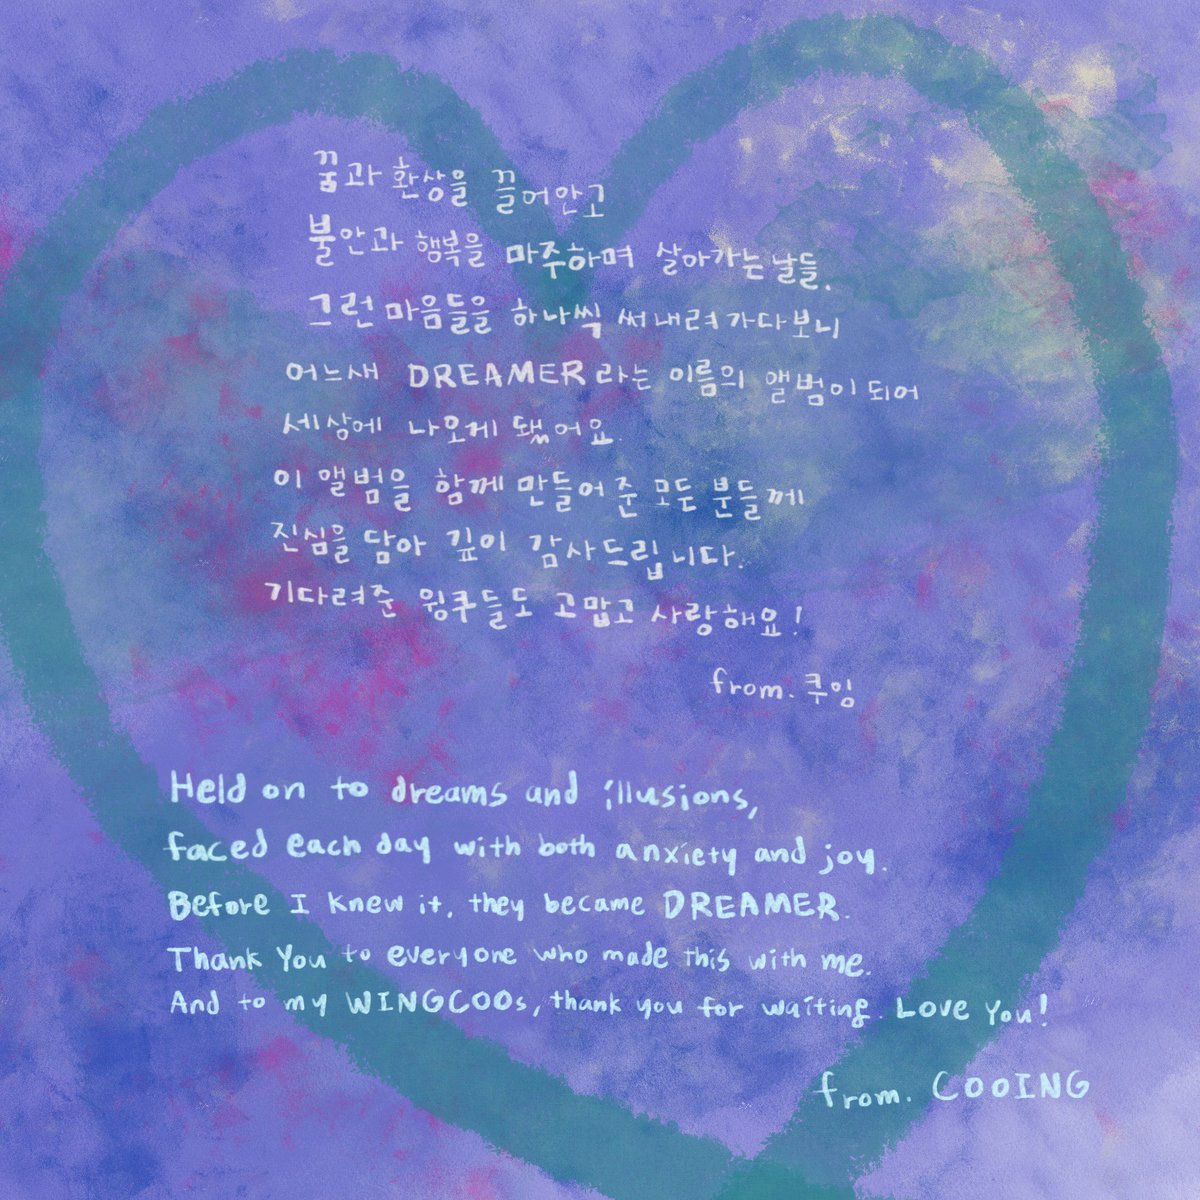 꿈과 환상을 끌어안고
불안과 행복을 마주하며 살아가는 날들.
그런 마음들을 하나씩 써내려가다보니
어느새 DREAMER라는 이름의 앨범이 되어
세상에 나오게 됐어요.
이 앨범을 함께 만들어 준 모든 분들께
진심을 담아 깊이 감사드립니다.
기다려준 윙쿠들도 고맙고 사랑해요!
from. 쿠잉
Held on to dreams and illusions,
faced each day with both anxiety and joy.
Before I knew it, they became DREAMER.
Thank You to everyone who made this with me.
And to my WINGCOOs, thank you for waiting. Love You!
from. COOING